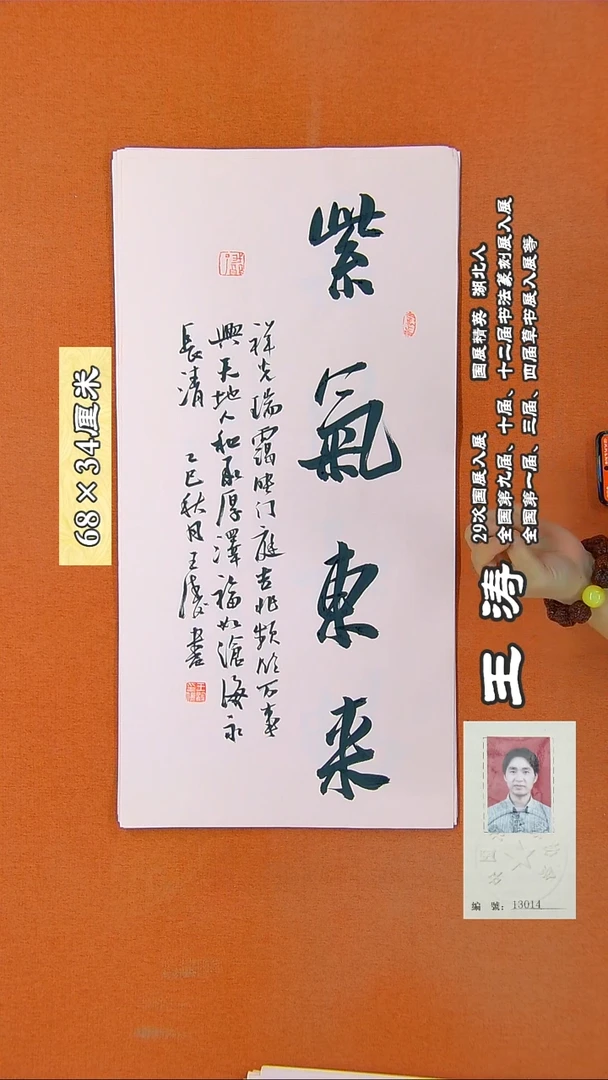 紫氣東来
祥光瑞靄映门庭吉兆频临万事
興天地人和承厚澤福如滄海永
長清
乙巳秋月王涛書
68×34厘米
国展精英 湖北人
29次国展入展
全国第九届、十届、十二届书法篆刻展入展
全国第一届、三届、四届草书展入展等
王涛
編 號：13014